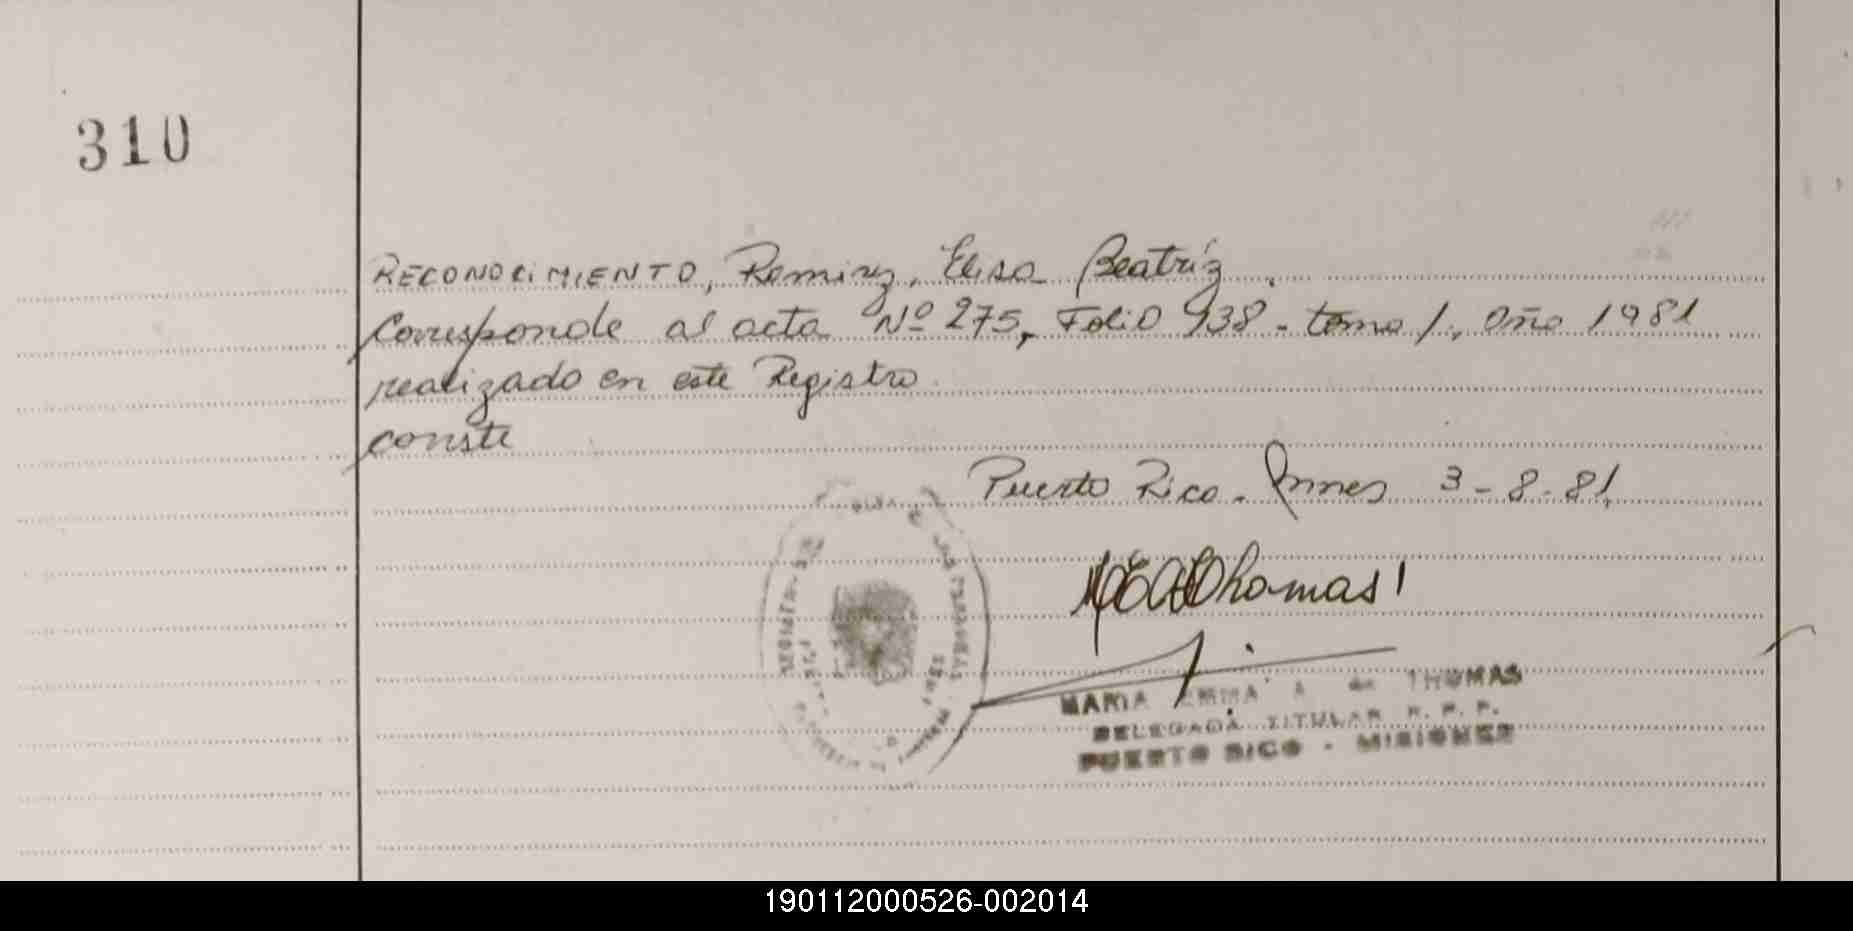 310
RECONOCIMIENTO, Ramirez, Elisa Beatríz.
Corresponde al acta Nº 275, Folio 938. tomo 1., Año 1981
realizado en este Registro.
conste
Puerto Rico. Mnes 3-8-81
Thomas
MARIA EMMA A. de THOMAS
DELEGADA TITULAR R. P. P.
PUERTO RICO - MISIONES
190112000526-002014